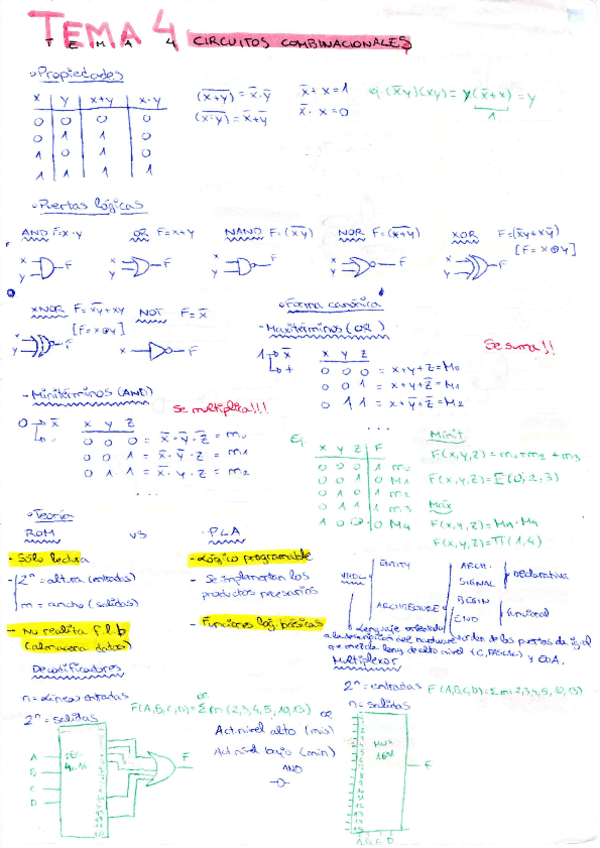 TEMA 4
TEMA 4 CIRCUITOS COMBINACIONALES
Propiedades
x y x+y x·y
0 0 0 0
0 1 1 0
1 0 1 0
1 1 1 1
(x̅+̅y̅) = x̅·y̅
(x̅·̅y̅) = x̅+y̅
x̅+x=1
x̅·x=0
ej (x̅y)(xy) = y(x̅+x) = y
1
Puertas lógicas
AND F=x·y
OR F=x+y
NAND F=(x̅y̅)
NOR F=(x̅+̅y̅)
XOR F=(x̅y+xy̅)
[F=x⊕y]
x y F
x y F
x y F
x y F
x y F
XNOR F=x̅y̅+xy
[F=x⊙y]
NOT F=x̅
x y F
x F
Forma canónica
- Maxitérminos (OR)
Se suma!!
1→x̅
x y z
0 0 0 = x+y+z = M0
0 0 1 = x+y+z̅ = M1
0 1 1 = x+y̅+z̅ = M2
...
- Minitérminos (AND)
Se multiplica!!!
0→x̅
x y z
0 0 0 = x̅·y̅·z̅ = m0
0 0 1 = x̅·y̅·z = m1
0 1 1 = x̅·y·z = m2
...
Ej
x y z F
0 0 0 1 m0
0 0 1 0 M1
0 1 0 1 m2
0 1 1 1 m3
1 0 0 0 M4
Minit
F(x,y,z) = m0+m2+m3
F(x,y,z) = Σ(0,2,3)
Max
F(x,y,z) = M1·M4
F(x,y,z) = Π(1,4)
Teoría
ROM vs PLA
- Sólo lectura
- 2ⁿ = altura (entradas)
m = ancho (salidas)
- No realiza f.l.b
(almacena datos)
- Lógico programable
- Se implementan los
productos necesarios
- Funciones lóg. básicas
VHDL
ENTITY
ARCHITECTURE
ARCH.
SIGNAL
BEGIN
END
Declarativa
Funcional
Lenguaje orientado
a la descripción del hardware
que mezcla leng de alto nivel (C, PASCAL) y EDA.
No dan de los puertos da igual
Decodificadores
n = líneas entradas
2ⁿ = salidas
or
F(A,B,C,D) = Σm(2,3,4,5,10,13)
OR
Act. nivel alto
Act. nivel bajo (min)
AND
A
B
C
D
DEC
4:16
F
Multiplexor
2ⁿ = entradas F(A,B,C,D) = Σm(2,3,4,5,10,13)
n = salidas
MUX
16:1
F
A B C D